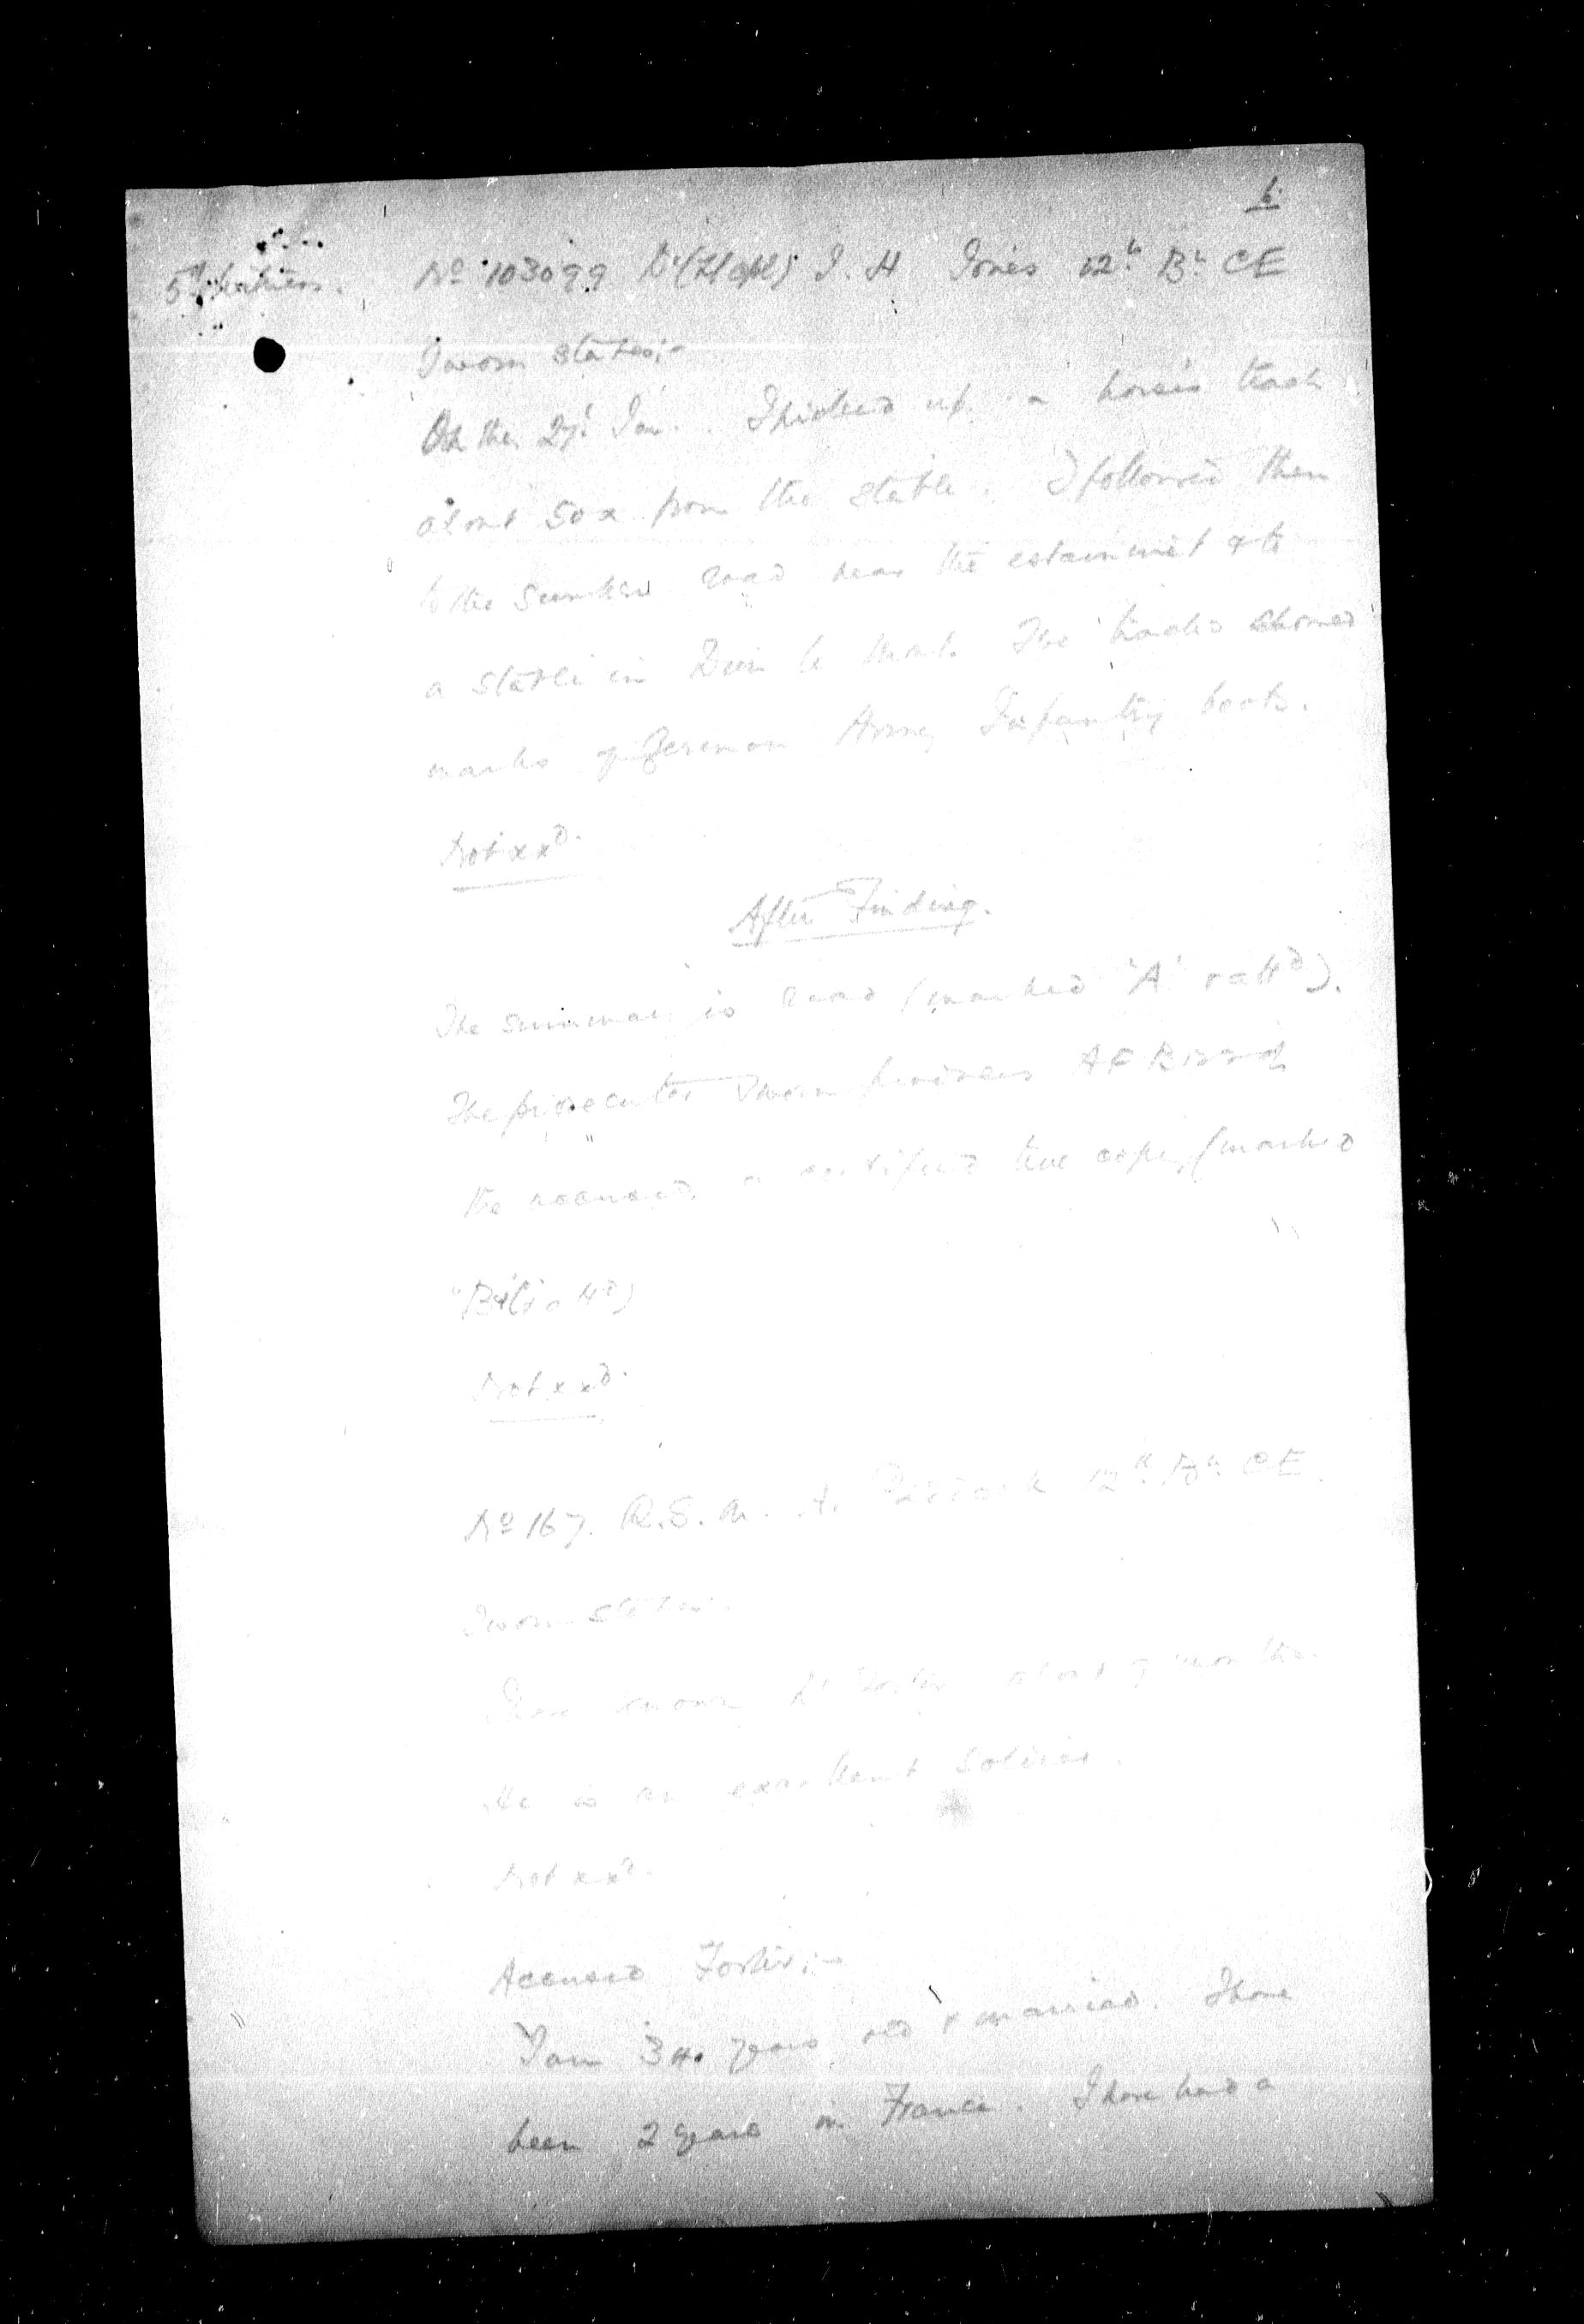 6.
5th Witness. No 103099 J. H Jones 12th Bn CE
Sworn states:-
On the 27th Jan. I picked up a horse's track
about 50x from the stable. I followed them
to the sunken road near the estaminet & to
a stable in The tracks showed
marks of German Army Infantry boots.
Not xxd.
After Finding.
The summary is read (marked "A" & attd).
The prosecutor sworn produces AF B122 of
the accused, a certified true copy (marked
"B" & attd)
Not xxd.
No 167. R.S.M. A. 12th Bn CE.
Sworn states.
I have known Foster about months.
He is an excellent soldier.
Not xxd.
Accused Foster:-
I am 34 years old & married. I have
been 2 years in France. I have had a